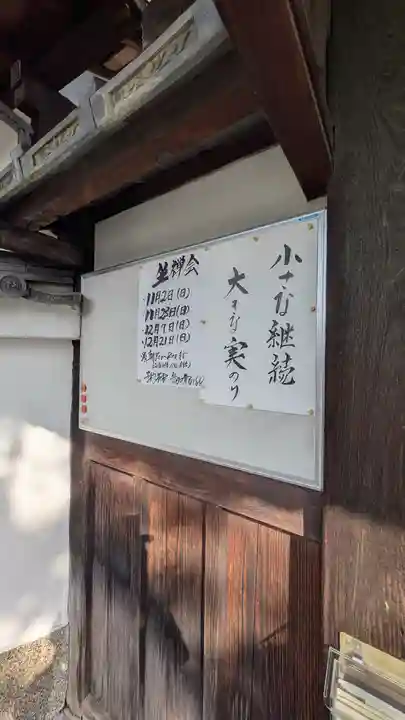 小さな継続
大きな実のり
坐禅会
・11月2日(日)
・11月23日(日)
・12月7日(日)
・12月21日(日)